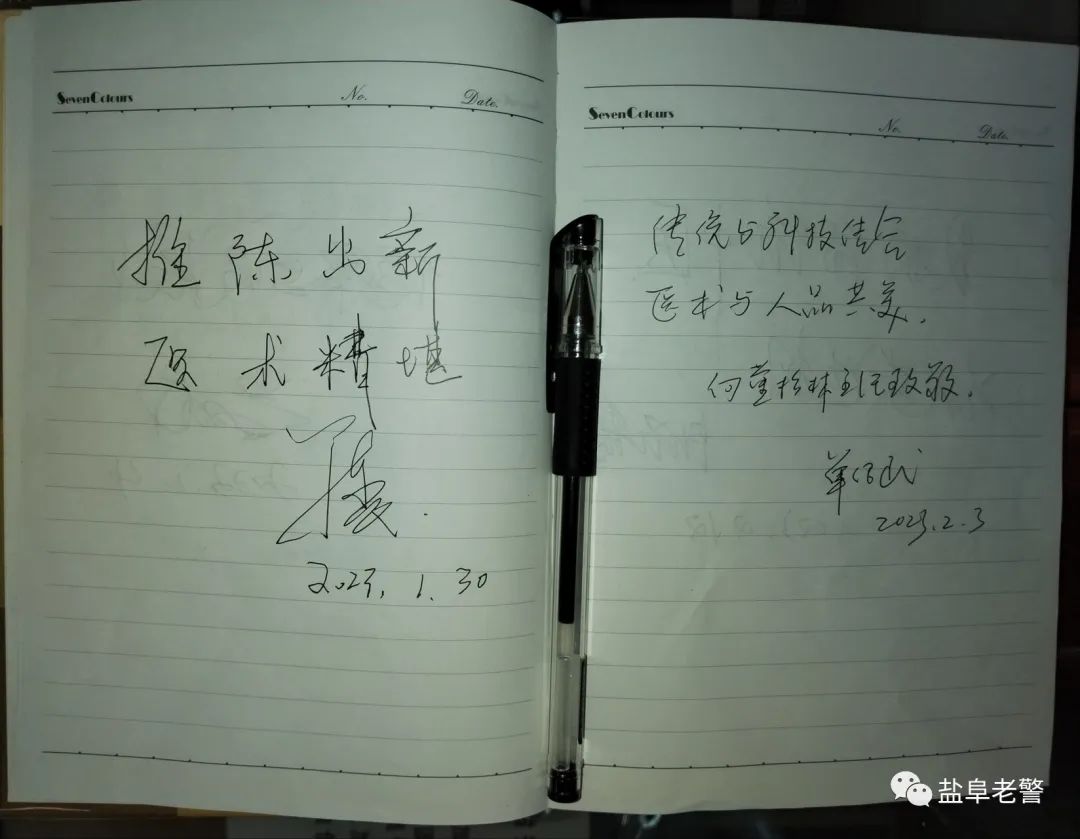 SevenColours No. Date.
推陈出新
医术精堪
2023.1.30
SevenColours No. Date.
传统与科技结合
医术与人品共美.
向董松林主任致敬.
2023.2.3
盐阜老警